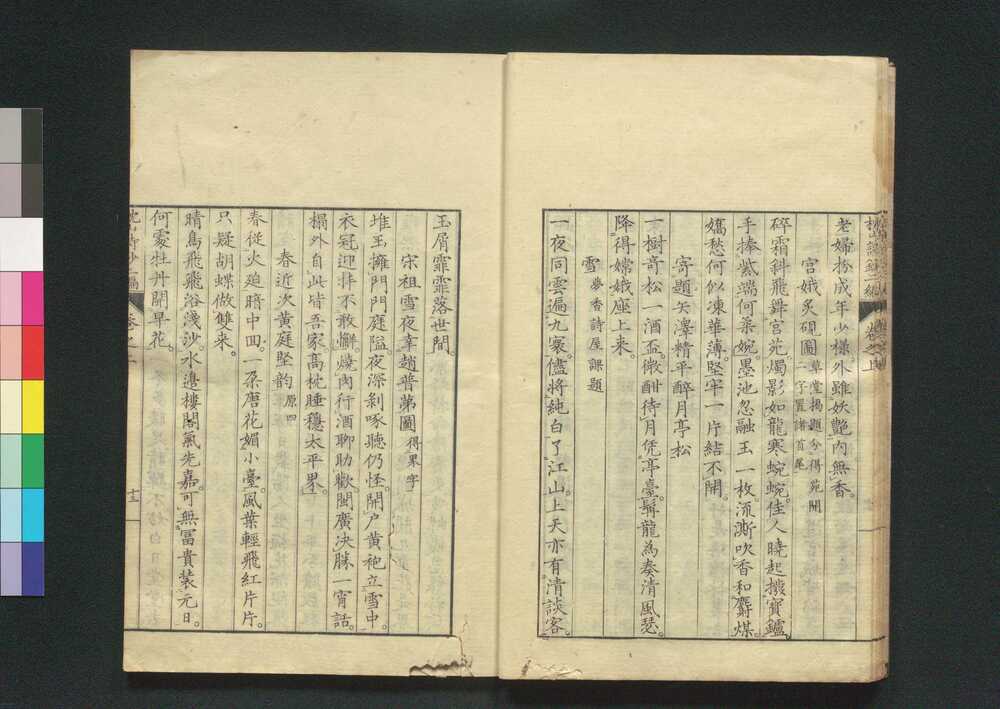 老婦扮成年少樣外雖妖艶内無香。
宮娥炙硯圖 草堂揭題分得苑開
二字置諸首尾
碎霜斜飛舞宮苑燭影如龍寒蜿蜿。佳人曉起撥寶鑪。
手捧紫端何柔婉。墨池忽融玉一枚。流澌吹香和麝煤。
嬌愁何似凍華薄。堅牢一片結不開。
寄題矢澤精平醉月亭松
一樹奇松一酒盃。微酣待月凭亭臺。髯龍為奏清風瑟。
降得嫦娥座上来。
雪 夢香詩屋課題
一夜同雲遍九寰。儘將純白了江山。上天亦有清談客。
玉屑霏霏落世間。
宋祖雪夜幸趙普第圖 得果字
堆玉擁門門庭隘夜深剝啄聽仍怪。開户黄袍立雪中。
衣冠迎拝不敢懈。燒肉行酒聊助歡閫廣决勝一宵話。
榻外自此皆吾家。高枕睡穩太平界。
春近次黄庭堅韵 原四
春從火𢌞暗中回。一朶唐花媚小臺。風葉輕飛紅片片。
只疑胡蝶做雙来。
晴鳥飛飛浴淺沙水邉樓閣氣先嘉。可無冨貴裝元日。
何處牡丹開早花。
卷之二
十三